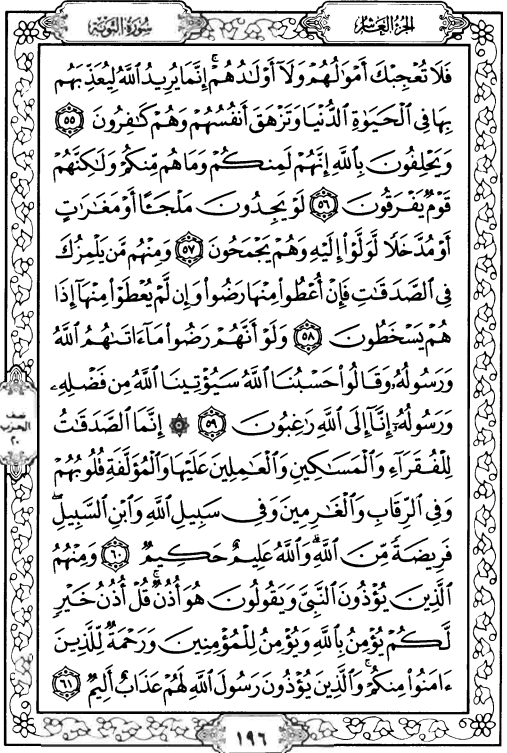 سُورَةُ التَّوْبَةِ
الجُزْءُ العَاشِرُ
فَلَا تُعْجِبْكَ أَمْوَٰلُهُمْ وَلَآ أَوْلَٰدُهُمْ ۚ إِنَّمَا يُرِيدُ ٱللَّهُ لِيُعَذِّبَهُم
بِهَا فِي ٱلْحَيَوٰةِ ٱلدُّنْيَا وَتَزْهَقَ أَنفُسُهُمْ وَهُمْ كَٰفِرُونَ ٥٥
وَيَحْلِفُونَ بِٱللَّهِ إِنَّهُمْ لَمِنكُمْ وَمَا هُم مِّنكُمْ وَلَٰكِنَّهُمْ
قَوْمٌ يَفْرَقُونَ ٥٦ لَوْ يَجِدُونَ مَلْجَـًٔا أَوْ مَغَٰرَٰتٍ
أَوْ مُدَّخَلًا لَّوَلَّوْا۟ إِلَيْهِ وَهُمْ يَجْمَحُونَ ٥٧ وَمِنْهُم مَّن يَلْمِزُكَ
فِي ٱلصَّدَقَٰتِ فَإِنْ أُعْطُوا۟ مِنْهَا رَضُوا۟ وَإِن لَّمْ يُعْطَوْا۟ مِنْهَآ إِذَا
هُمْ يَسْخَطُونَ ٥٨ وَلَوْ أَنَّهُمْ رَضُوا۟ مَآ ءَاتَىٰهُمُ ٱللَّهُ
وَرَسُولُهُۥ وَقَالُوا۟ حَسْبُنَا ٱللَّهُ سَيُؤْتِينَا ٱللَّهُ مِن فَضْلِهِۦ
وَرَسُولُهُۥٓ إِنَّآ إِلَى ٱللَّهِ رَٰغِبُونَ ٥٩ ۞ إِنَّمَا ٱلصَّدَقَٰتُ
لِلْفُقَرَآءِ وَٱلْمَسَٰكِينِ وَٱلْعَٰمِلِينَ عَلَيْهَا وَٱلْمُؤَلَّفَةِ قُلُوبُهُمْ
وَفِي ٱلرِّقَابِ وَٱلْغَٰرِمِينَ وَفِي سَبِيلِ ٱللَّهِ وَٱبْنِ ٱلسَّبِيلِ ۖ
فَرِيضَةً مِّنَ ٱللَّهِ ۗ وَٱللَّهُ عَلِيمٌ حَكِيمٌ ٦٠ وَمِنْهُمُ
ٱلَّذِينَ يُؤْذُونَ ٱلنَّبِيَّ وَيَقُولُونَ هُوَ أُذُنٌ ۚ قُلْ أُذُنُ خَيْرٍ
لَّكُمْ يُؤْمِنُ بِٱللَّهِ وَيُؤْمِنُ لِلْمُؤْمِنِينَ وَرَحْمَةٌ لِّلَّذِينَ
ءَامَنُوا۟ مِنكُمْ ۚ وَٱلَّذِينَ يُؤْذُونَ رَسُولَ ٱللَّهِ لَهُمْ عَذَابٌ أَلِيمٌ ٦١
نصف
الحزب
٢٠
١٩٦